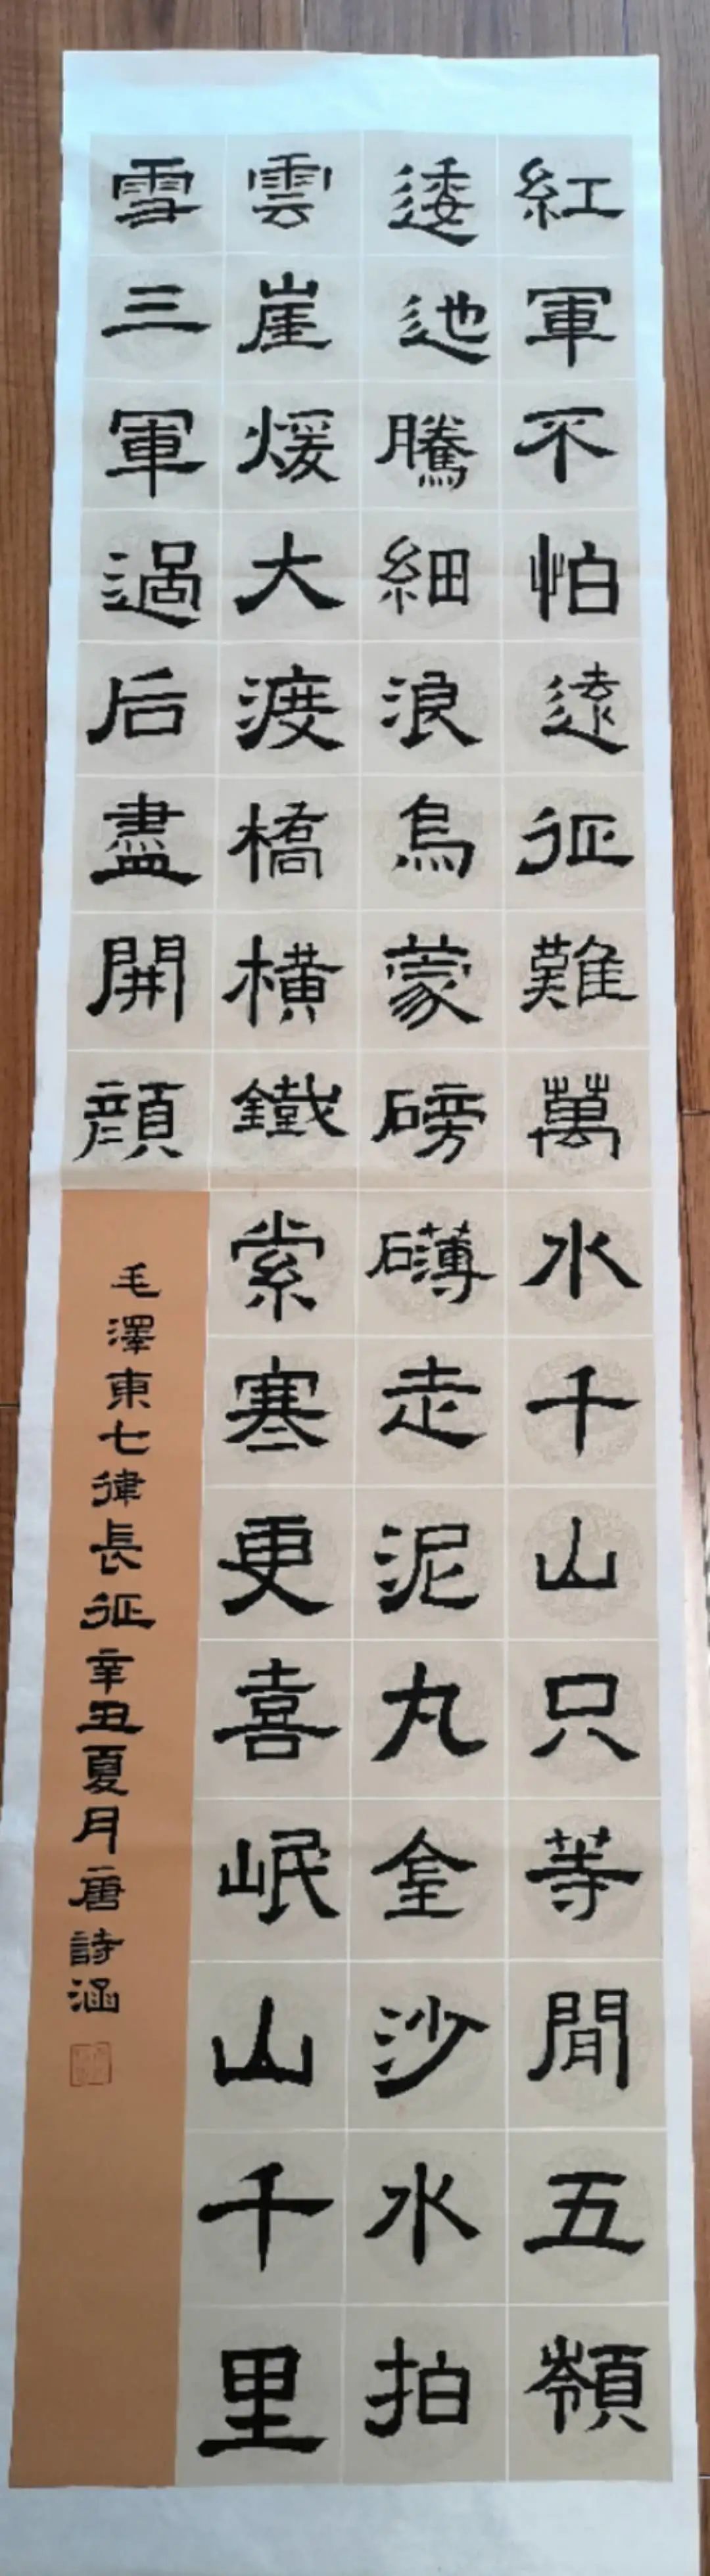 紅軍不怕遠征難萬水千山只等閒五嶺
逶迆騰細浪烏蒙磅礴走泥丸金沙水拍
雲崖煖大渡橋橫鐵索寒更喜岷山千里
雪三軍過后盡開顏
毛澤東七律長征辛丑夏月唐詩涵